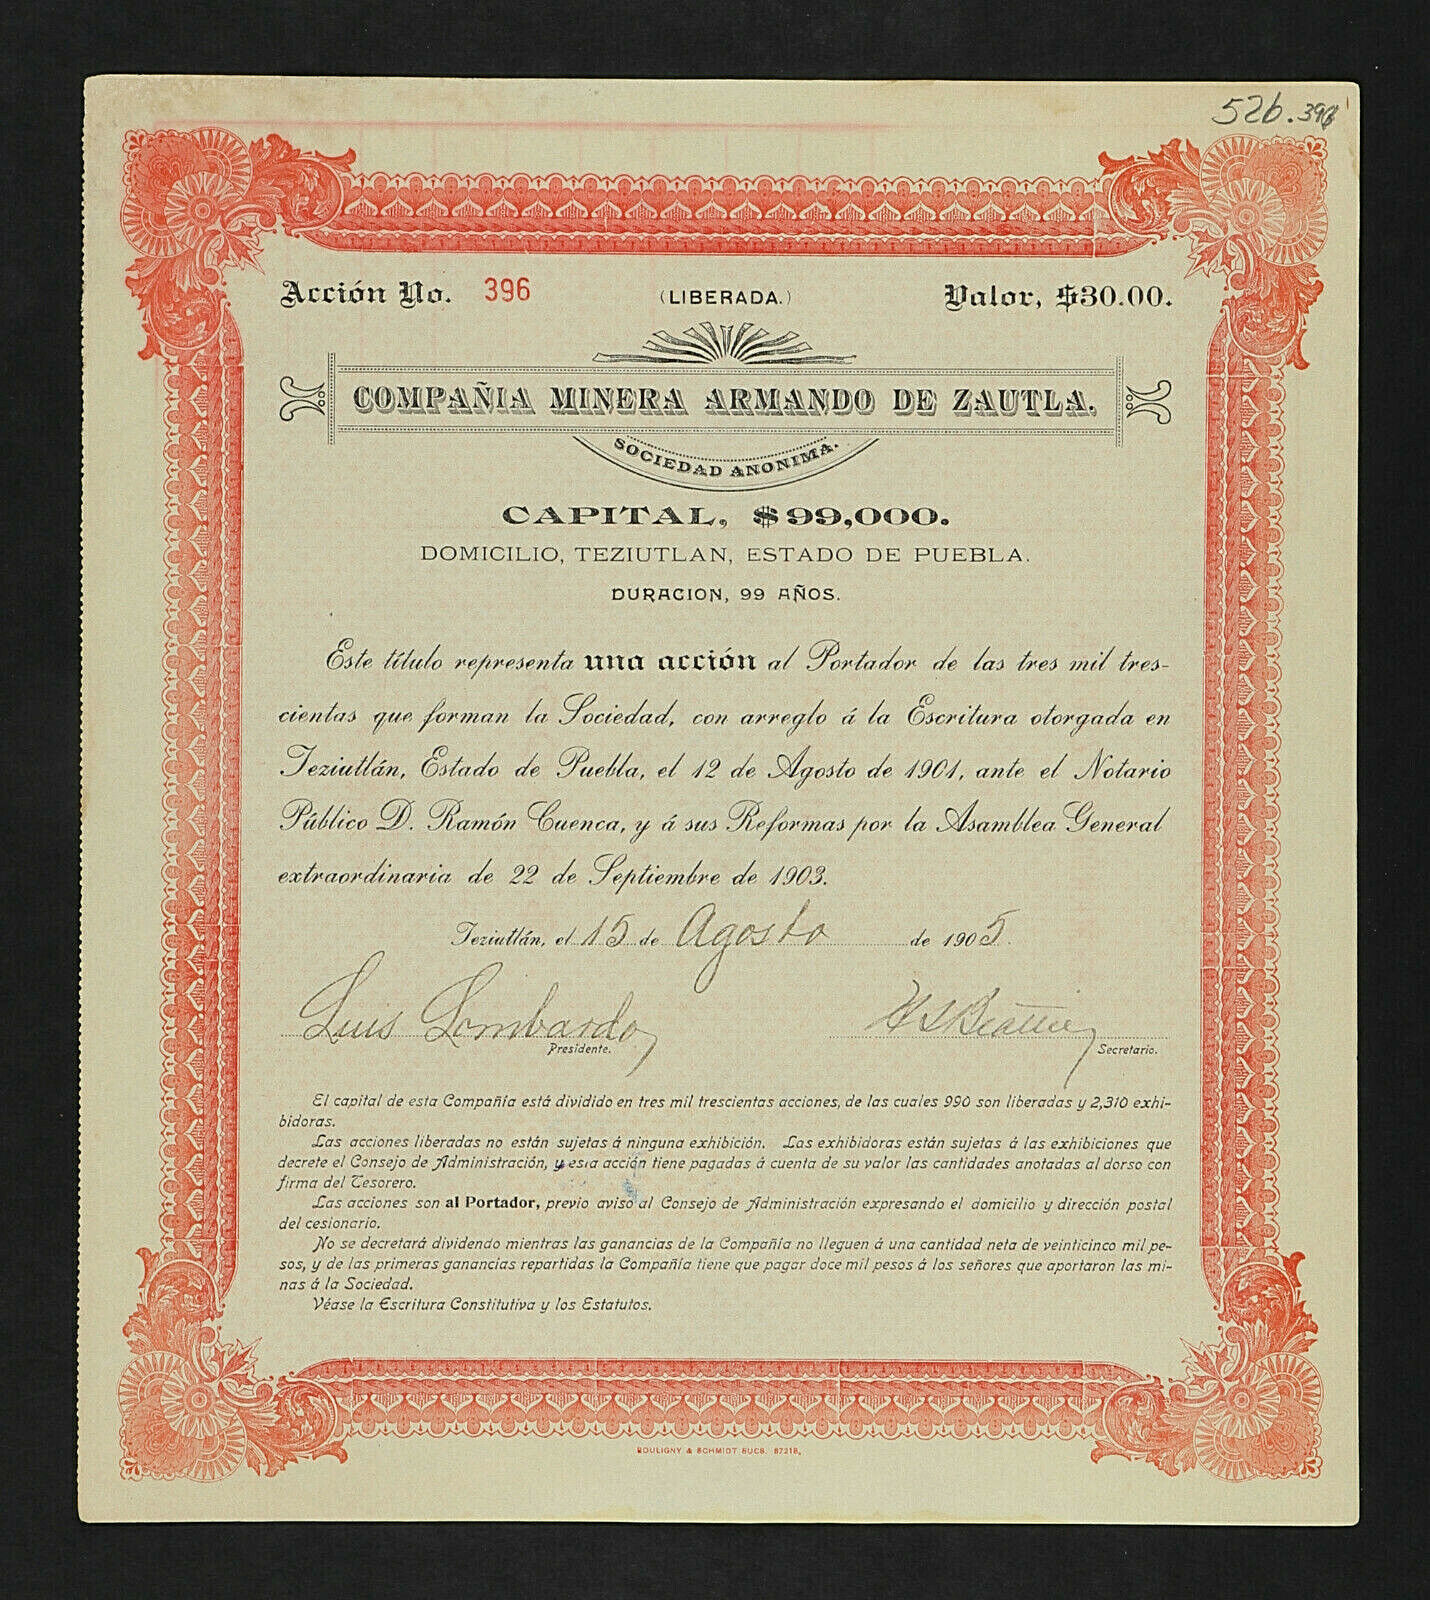 526.396
Acción No. 396 (LIBERADA.) Valor, $30.00.
COMPAÑIA MINERA ARMANDO DE ZAUTLA.
SOCIEDAD ANONIMA.
CAPITAL, $99,000.
DOMICILIO, TEZIUTLAN, ESTADO DE PUEBLA.
DURACION, 99 AÑOS.
Este título representa una acción al Portador de las tres mil tres-
cientas que forman la Sociedad, con arreglo á la Escritura otorgada en
Teziutlán, Estado de Puebla, el 12 de Agosto de 1901, ante el Notario
Público D. Ramón Cuenca, y á sus Reformas por la Asamblea General
extraordinaria de 22 de Septiembre de 1903.
Teziutlán, el 15 de Agosto de 1905.
Luis Lombardo
Presidente. Secretario.
El capital de esta Compañía está dividido en tres mil trescientas acciones, de las cuales 990 son liberadas y 2,310 exhi-
bidoras.
Las acciones liberadas no están sujetas á ninguna exhibición. Las exhibidoras están sujetas á las exhibiciones que
decrete el Consejo de Administración, y esta acción tiene pagadas á cuenta de su valor las cantidades anotadas al dorso con
firma del Tesorero.
Las acciones son al Portador, previo aviso al Consejo de Administración expresando el domicilio y dirección postal
del cesionario.
No se decretará dividendo mientras las ganancias de la Compañía no lleguen á una cantidad neta de veinticinco mil pe-
sos, y de las primeras ganancias repartidas la Compañía tiene que pagar doce mil pesos á los señores que aportaron las mi-
nas á la Sociedad.
Véase la Escritura Constitutiva y los Estatutos.
BOULIGNY & SCHMIDT SUCS. 87218.